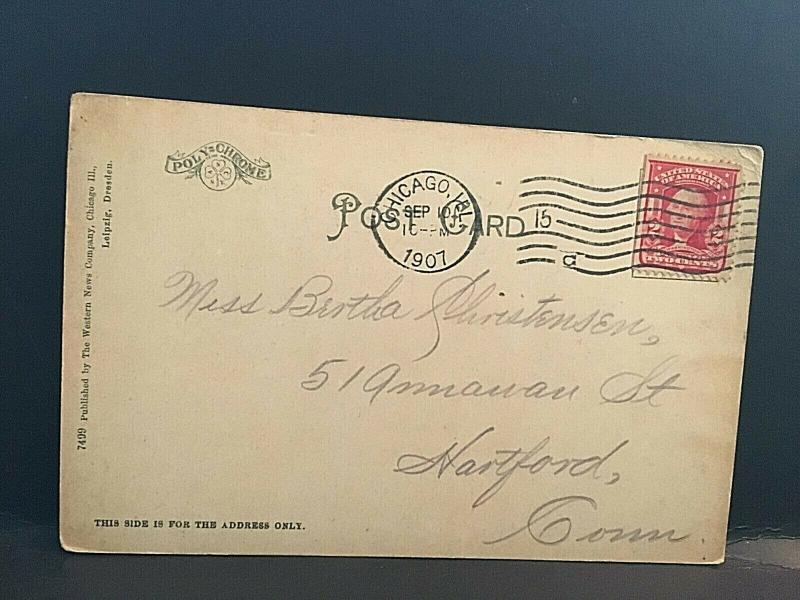 POLY-CHROME
POST CARD
CHICAGO, ILL.
SEP 10
1907
15
d
UNITED STATES
OF AMERICA
2 2
TWO CENTS
Miss Bertha Christensen,
51 Annawan St
Hartford,
Conn.
7499 Published by The Western News Company, Chicago Ill.,
Leipzig, Dresden.
THIS SIDE IS FOR THE ADDRESS ONLY.